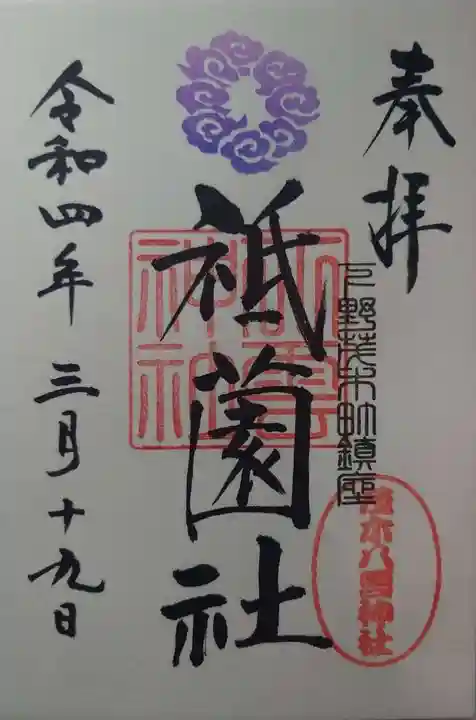 奉拝
下野茂木町鎮座
祇園社
八雲神社
茂木八雲神社
令和四年 三月十九日